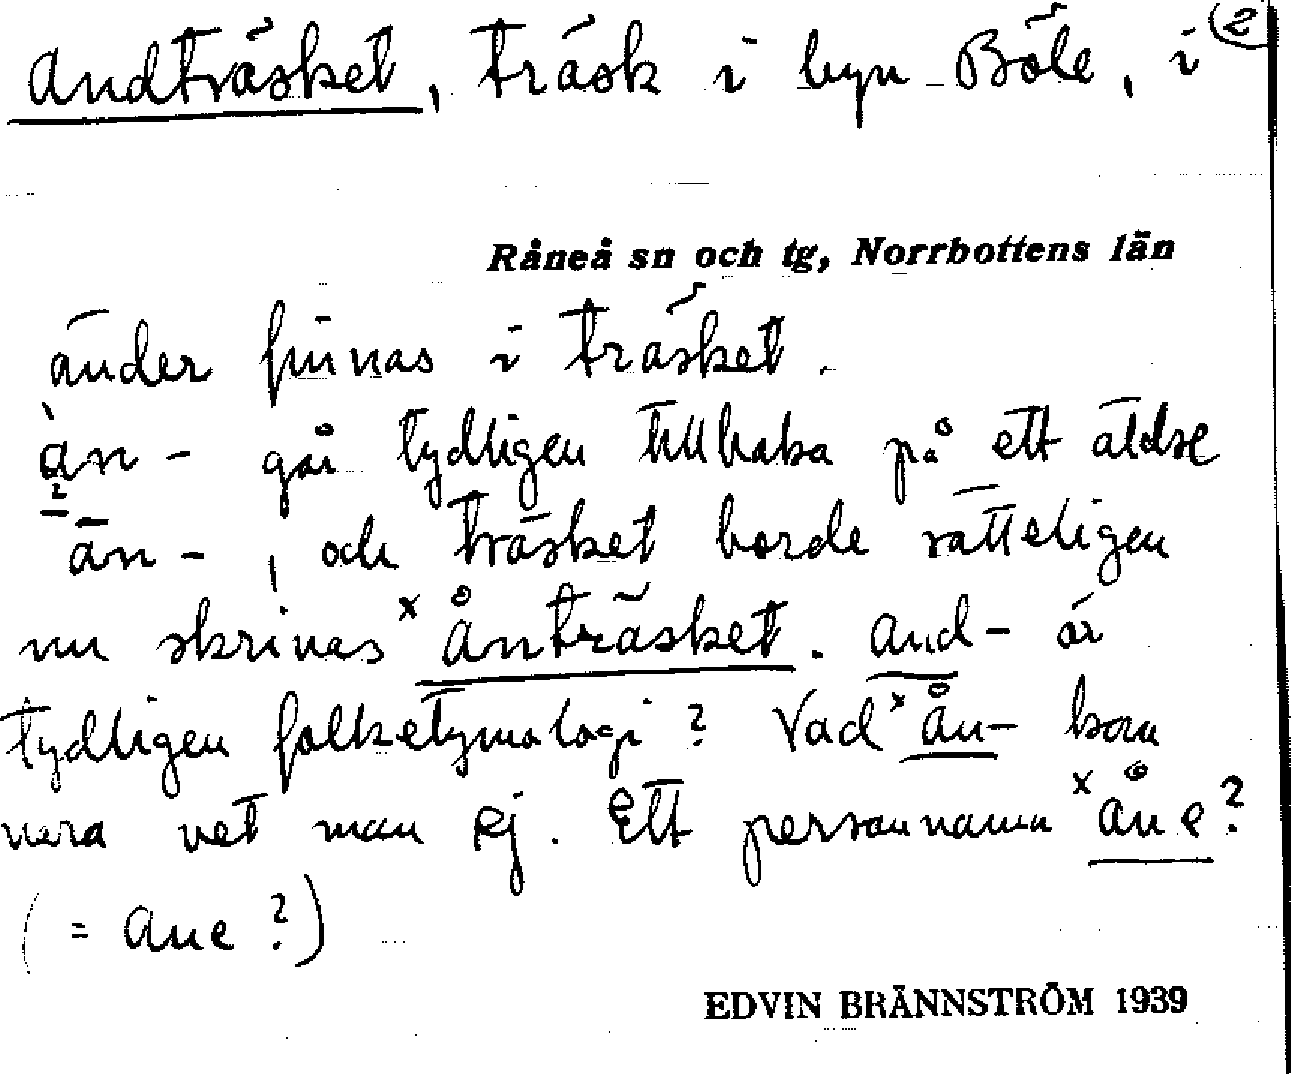 Andträsket, träsk i byn Böle, i ②
Råneå sn och tg, Norrbottens län
änder finnas i träsket.
àn- går tydligen tillbaka på ett äldse
2
ān-, och träsket borde rätteligen
nu skrivas ˣånträsket. and- är
tydligen folketymologi? Vad ˣån- kan
vara vet man ej. Ett personnamn ˣåne?
(= ane?)
EDVIN BRÄNNSTRÖM 1939